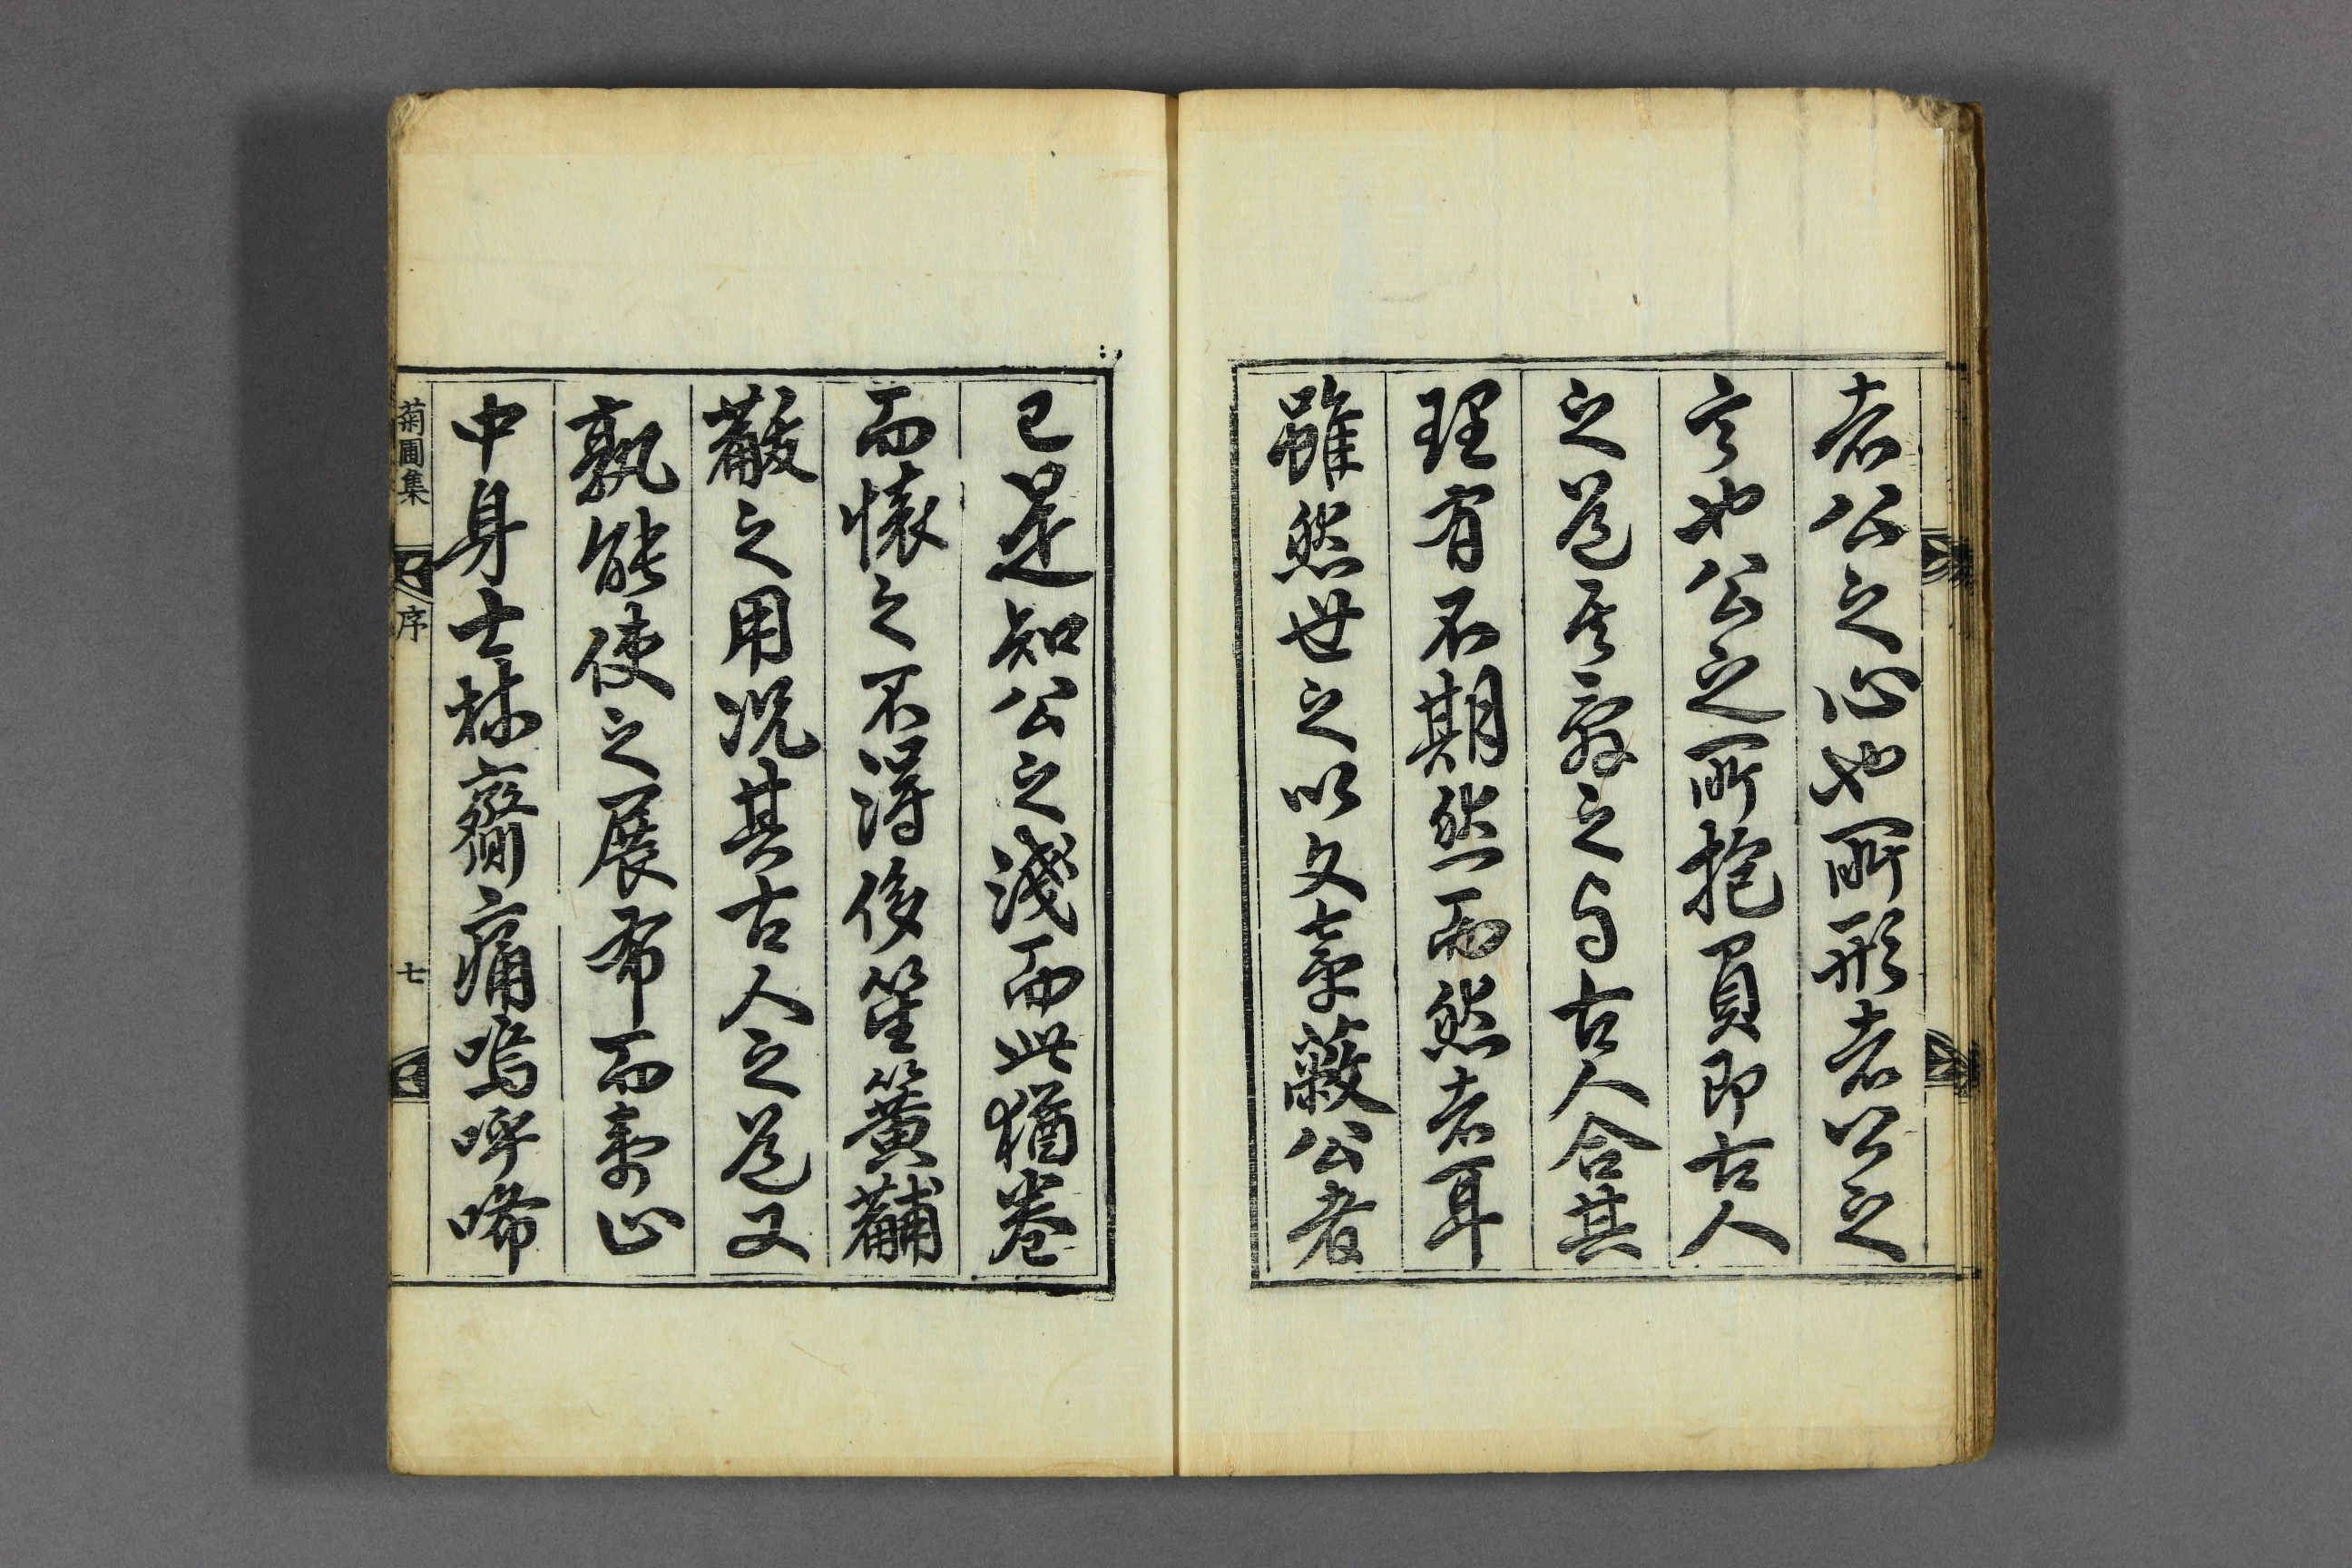 者公之心也所形者公之
言也公之所抱負即古人
之道其辭之与古人合其
理有不期然而然者耳
雖然世之以文章蔽公者
已是知公之淺而此猶卷
而懷之不得侈笙簧黼
黻之用況其古人之道又
孰能使之展布而壽止
中身士林齎痛嗚呼唏
菊圃集
序
七